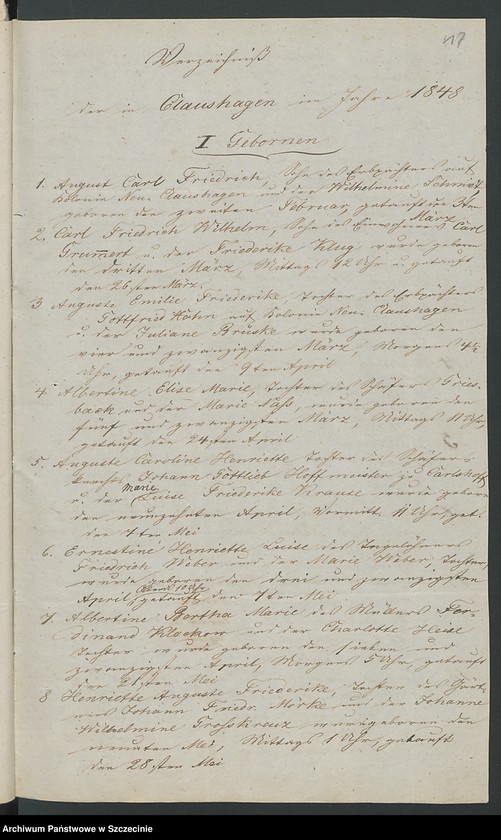 417
Verzeichniß
der in Claushagen im Jahre 1848
I Gebornen
1. August Carl Friedrich, Sohn des Erbpächters auf
Kolonie Neu-Claushagen und der Wilhelmine Schmidt,
geboren den zweiten Februar, getauft den 3ten
März
2. Carl Friedrich Wilhelm, Sohn des Einwohners Carl
Grummert u. der Friederike Klug wurde geboren
den dritten März, Mittags 12 Uhr u. getauft
den 26sten März.
3 Auguste Emilie Friederike, Tochter des Erbpächters
Gottfried Höhn auf Kolonie Neu-Claushagen
u. der Juliane Brüske wurde geboren den
vier und zwanzigsten März, Morgens 4½
Uhr, getauft den 9ten April
4. Albertine Elise Marie, Tochter des Schäfers Gries-
back und der Marie Nass, wurde geboren den
fünf und zwanzigsten März, Mittags 11 Uhr,
getauft den 24sten April
5. Auguste Caroline Henriette Tochter des Schäfer-
knechts Johann Gottlieb Hoffmeister zu Carlshoff
u. der Marie Luise Friederike Krause wurde geboren
den neunzehnten April, Vormitt. 11 Uhr, get.
den 7ten Mei
6. Ernestine Henriette Luise des Tagelöhners
Friedrich Weber und der Marie Weber, Tochter,
wurde geboren den drei und zwanzigsten
April, Abend 10 Uhr, getauft den 7ten Mei
7. Albertine Bertha Marie des Müllers Fer-
dinand Klockow und der Charlotte Heise
Tochter wurde geboren den sieben und
zwanzigsten April, Morgens 5 Uhr, getauft
den 21sten Mei
8 Henriette Auguste Friederike, Tochter des Gärt-
ners Johann Friedr. Mörke und der Johanne
Wilhelmine Grosskreuz wurde geboren den
neunten Mei, Mittags 1 Uhr, getauft
den 28sten Mei
Archiwum Państwowe w Szczecinie